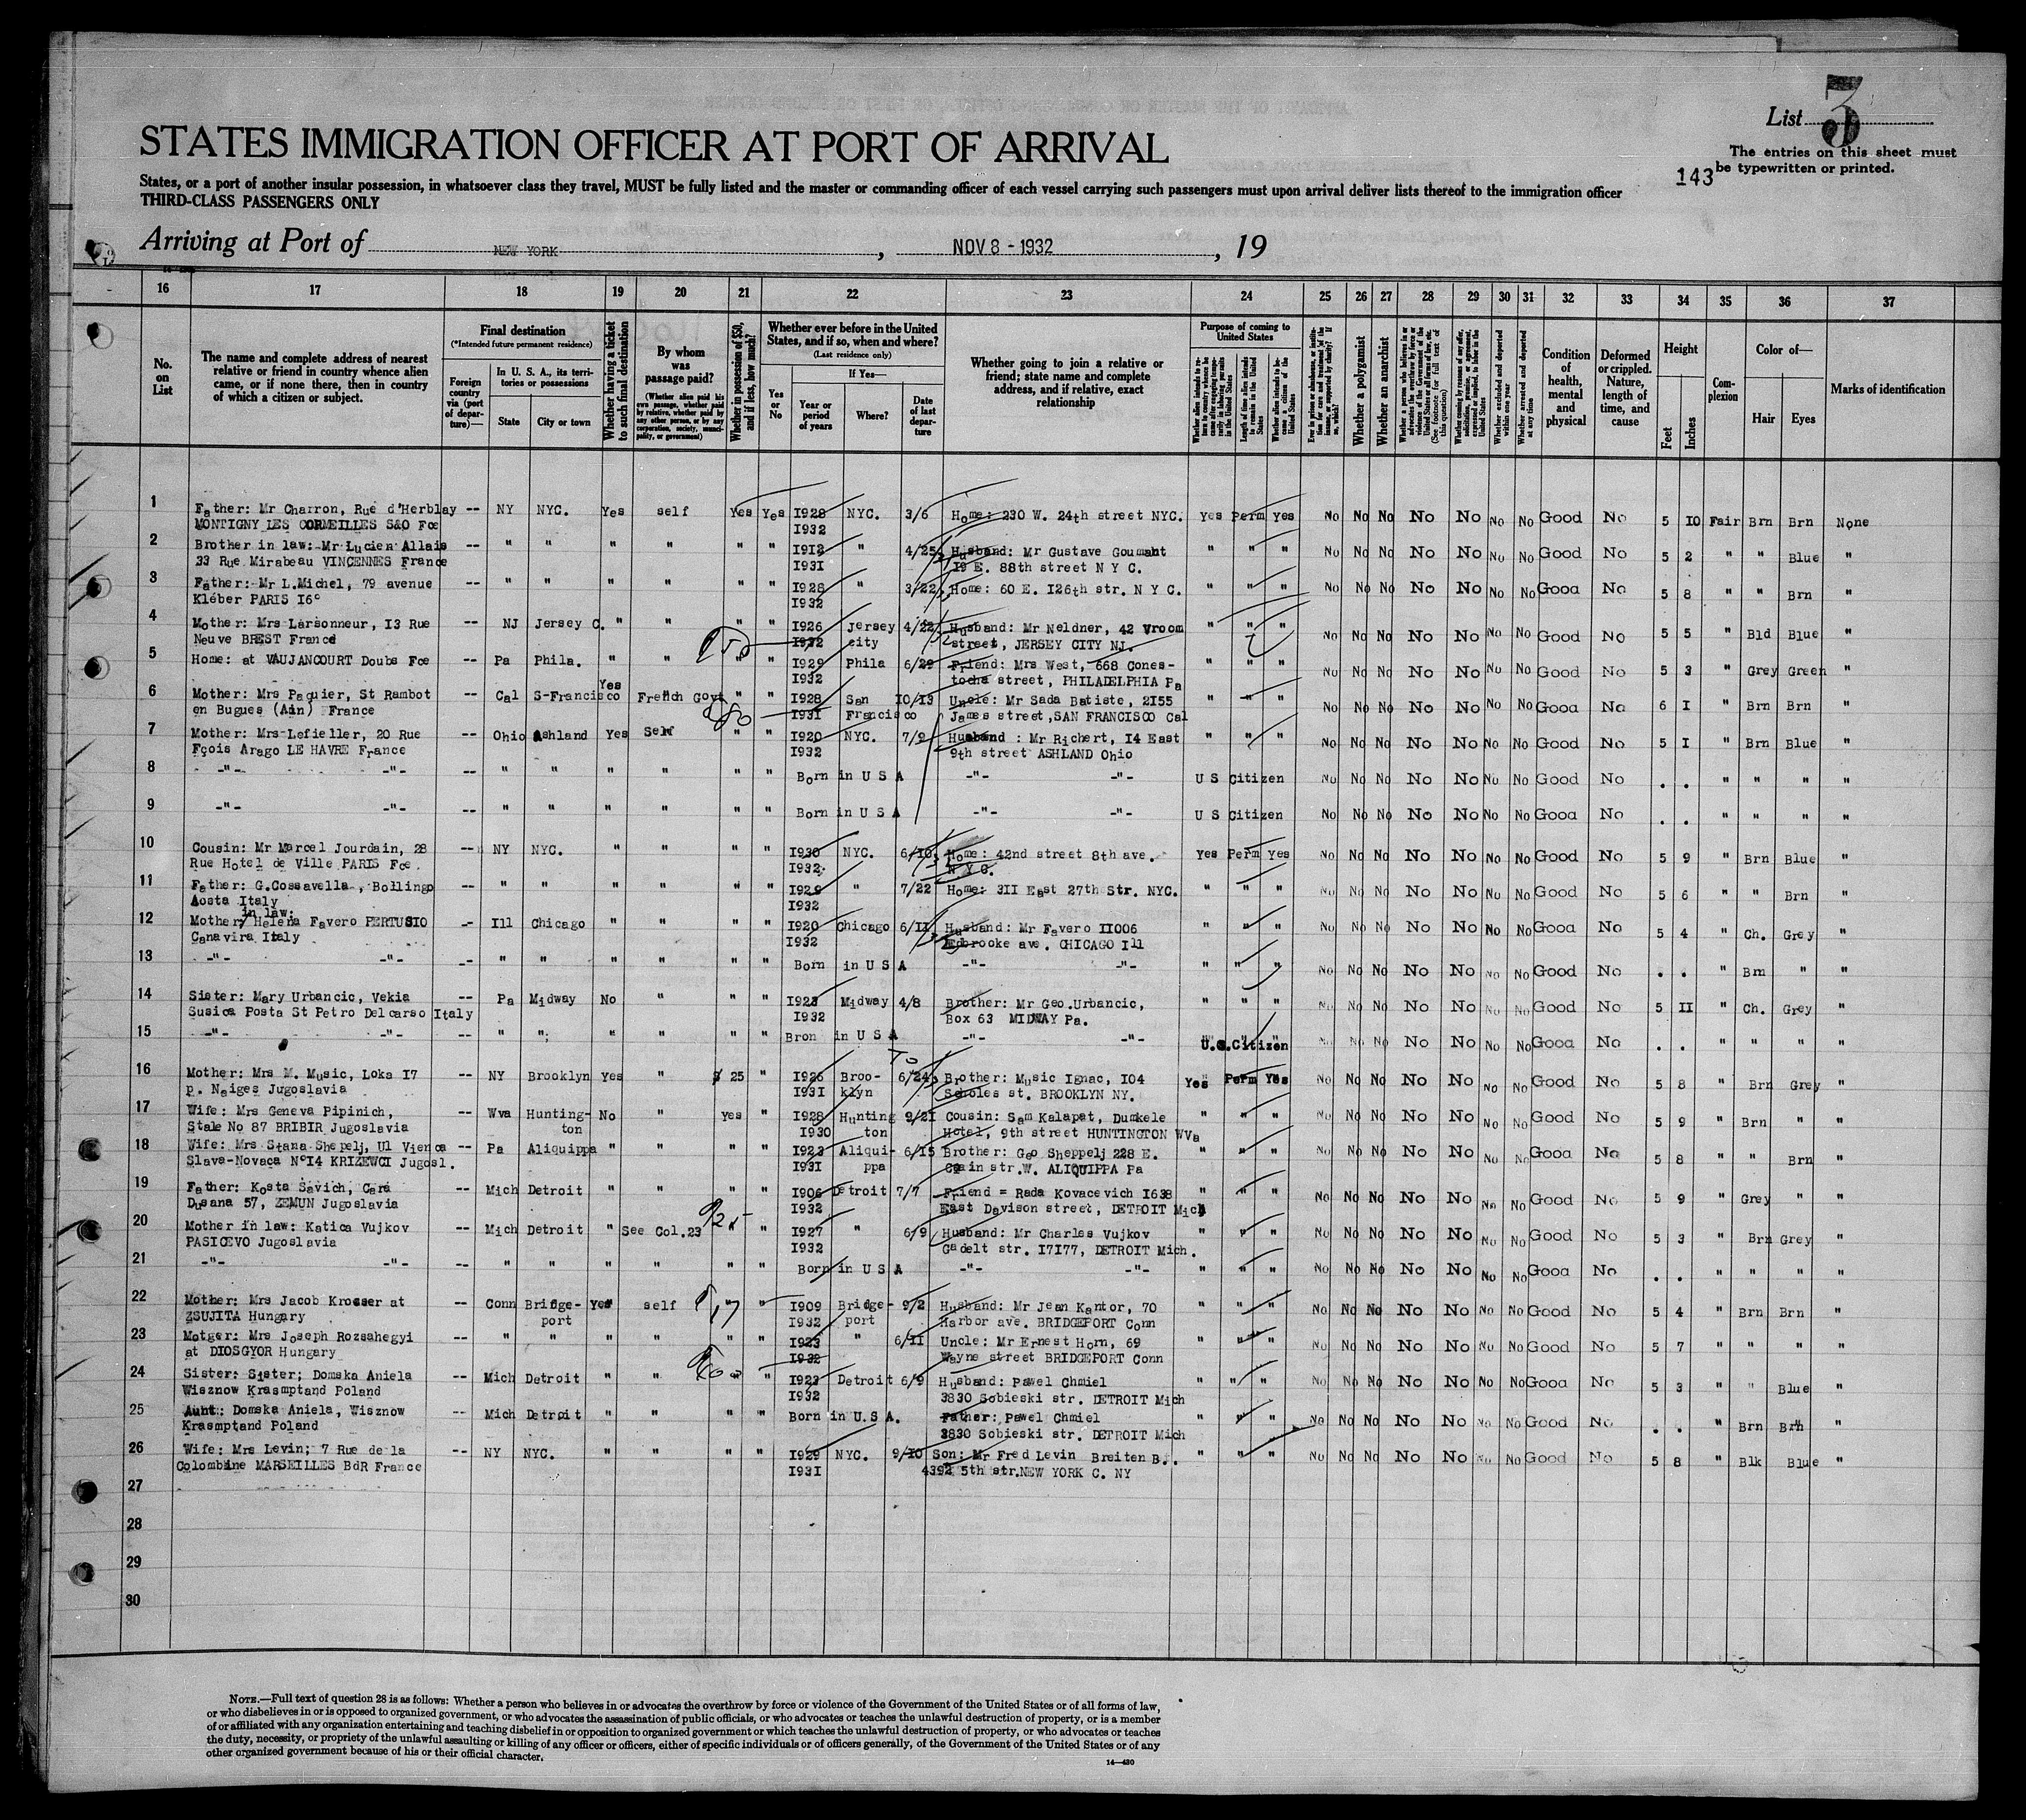 List 3
The entries on this sheet must
be typewritten or printed.
143
STATES IMMIGRATION OFFICER AT PORT OF ARRIVAL
States, or a port of another insular possession, in whatsoever class they travel, MUST be fully listed and the master or commanding officer of each vessel carrying such passengers must upon arrival deliver lists thereof to the immigration officer
THIRD-CLASS PASSENGERS ONLY
Arriving at Port of NEW YORK, NOV 8 - 1932, 19
16 17 18 19 20 21 22 23 24 25 26 27 28 29 30 31 32 33 34 35 36 37
No. on List
The name and complete address of nearest
relative or friend in country whence alien
came, or if none there, then in country
of which a citizen or subject.
Final destination
(*Intended future permanent residence)
Foreign country via (port of departure)—
In U. S. A., its territories or possessions
State City or town
Whether having a ticket to such final destination
By whom was passage paid?
(Whether alien paid his own passage, whether paid by relative, whether paid by any other person, or by any corporation, society, municipality, or government)
Whether in possession of $50, and if less, how much?
Whether ever before in the United
States, and if so, when and where?
(Last residence only)
Yes or No
If Yes—
Year or period of years
Where?
Date of last departure
Whether going to join a relative or
friend; state name and complete
address, and if relative, exact
relationship
Purpose of coming to United States
Length of time alien intends to remain in the United States
Whether alien intends to become a citizen of the United States
Whether a polygamist
Whether an anarchist
Whether excluded and deported within one year
Whether arrested and deported at any time
Condition of health, mental and physical
Deformed or crippled. Nature, length of time, and cause
Height
Feet Inches
Complexion
Color of—
Hair Eyes
Marks of identification
1 Father: Mr Charron, Rue d'Herblay -- NY NYC. Yes self Yes Yes 1928 NYC. 3/6 Home: 230 W. 24th street NYC. Yes Perm Yes No No No No No No No Good No 5 10 Fair Brn Brn None
MONTIGNY LES CORMEILLES S&O Fce 1932
2 Brother in law: Mr Lucien Allais -- " " " " " " 1912 " 4/25 Husband: Mr Gustave Goumant " " " No No No No No No No Good No 5 2 " " Blue "
33 Rue Mirabeau VINCENNES France 1931 19 E. 88th street N Y C.
3 Father: Mr L.Michel, 79 avenue -- " " " " " " 1928 " 3/22 Home: 60 E. 126th str. N Y C. " " " No No No No No No No Good No 5 8 " " Brn "
Kléber PARIS 16° 1932
4 Mother: Mrs Larsonneur, 13 Rue -- NJ Jersey C. " " " " 1926 Jersey 4/22 Husband: Mr Neldner, 42 Vroom " " " No No No No No No No Good No 5 5 " Bld Blue "
Neuve BREST France 1932 city street, JERSEY CITY NJ.
5 Home: at VAUJANCOURT Doubs Fce -- Pa Phila. " " " " 1929 Phila 6/29 Friend: Mrs West, 668 Cones- " " " No No No No No No No Good No 5 3 " Grey Green "
1932 tocha street, PHILADELPHIA Pa
6 Mother: Mrs Paquier, St Rambot -- Cal S-Francisco Yes French Govt " " 1928 San 10/13 Uncle: Mr Sada Batiste, 2155 " " " No No No No No No No Good No 6 1 " Brn Brn "
en Bugues (Ain) France 1931 Francisco James street, SAN FRANCISCO Cal
7 Mother: Mrs Lefieller, 20 Rue -- Ohio Ashland Yes Self " " 1920 NYC. 7/9 Husband : Mr Richert, 14 East " " " No No No No No No No Good No 5 1 " Brn Blue "
Fçois Arago LE HAVRE France 1932 9th street ASHLAND Ohio
8 -"- -"- -- " " " " " " Born in U S A -"- -"- U S Citizen No No No No No No No Good No . . " " " "
9 -"- -"- -- " " " " " " Born in U S A -"- -"- U S Citizen No No No No No No No Good No . . " " " "
10 Cousin: Mr Marcel Jourdain, 28 -- NY NYC. " " " " 1930 NYC. 6/10 Home: 42nd street 8th ave. Yes Perm Yes No No No No No No No Good No 5 9 " Brn Blue "
Rue Hotel de Ville PARIS Fce. 1932 N.Y.C.
11 Father: G.Cossavella, Bollingo -- " " " " " " 1929 " 7/22 Home: 311 East 27th Str. NYC. " " " No No No No No No No Good No 5 6 " " Brn "
Aosta Italy 1932
12 Mother in law: Helena Favero PERTUSIO -- Ill Chicago " " " " 1920 Chicago 6/11 Husband: Mr Favero 11006 " " " No No No No No No No Good No 5 4 " Ch. Grey "
Canavira Italy 1932 Edbrooke ave. CHICAGO Ill
13 -"- -"- -- " " " " " " Born in U S A -"- -"- " " " No No No No No No No Good No . . " Brn " "
14 Sister: Mary Urbancic, Vekia -- Pa Midway No " " " 1923 Midway 4/8 Brother: Mr Geo.Urbancic, " " " No No No No No No No Good No 5 11 " Ch. Grey "
Susica Posta St Petro Delcarso Italy 1932 Box 63 MIDWAY Pa.
15 -"- -"- -- " " " " " " Bron in U S A -"- -"- U.S.Citizen No No No No No No No Good No . . " " " "
16 Mother: Mrs M. Music, Loka 17 -- NY Brooklyn Yes " $ 25 " 1926 Broo- 6/24 Brother: Music Ignac, 104 Yes Perm Yes No No No No No No No Good No 5 8 " Brn Grey "
p. Naiges Jugoslavia 1931 klyn Scholes st. BROOKLYN NY.
17 Wife: Mrs Geneva Pipinich, -- Wva Hunting- No " yes " 1928 Hunting 9/21 Cousin: Sam Kalapat, Dumkele " " " No No No No No No No Good No 5 9 " Brn " "
Stale No 87 BRIBIR Jugoslavia ton 1930 ton Hotel, 9th street HUNTINGTON WVa
18 Wife: Mrs Stana Shepelj, Ul Vienca -- Pa Aliquippa " " " " 1923 Aliqui- 6/15 Brother: Geo Sheppelj 228 E. " " " No No No No No No No Good No 5 8 " " Brn "
Slava-Novaca N°14 KRIZEWCI Jugosl. 1931 ppa Cgain str.W. ALIQUIPPA Pa
19 Father: Kosta Savich, Cara -- Mich Detroit " " " " 1906 Detroit 7/7 Friend = Rada Kovacevich 1638 " " " No No No No No No No Good No 5 9 " Grey " "
Dusana 57, ZEMUN Jugoslavia 1932 East Davison street, DETROIT Mich
20 Mother in law: Katica Vujkov -- Mich Detroit " See Col.23 " 1927 " 6/9 Husband: Mr Charles Vujkov " " " No No No No No No No Good No 5 3 " Brn Grey "
PASICEVO Jugoslavia 1932 Gadelt str. 17177, DETROIT Mich.
21 -"- -"- -- " " " " " " Born in U S A -"- -"- " " " No No No No No No No Good No . . " " " "
22 Mother: Mrs Jacob Krosser at -- Conn Bridge- Yes self " " 1909 Bridge- 9/2 Husband: Mr Jean Kantor, 70 " " " No No No No No No No Good No 5 4 " Brn Brn "
ZSUJITA Hungary port 1932 port Harbor ave. BRIDGEPORT Conn
23 Motger: Mrs Joseph Rozsahegyi -- " " " " " " 1923 " 6/11 Uncle: Mr Ernest Horn, 69 " " " No No No No No No No Good No 5 7 " " " "
at DIOSGYOR Hungary 1932 Wayne street BRIDGEPORT Conn
24 Sister: Sister; Domska Aniela -- Mich Detroit " " " 1923 Detroit 6/9 Husband: Pawel Chmiel " " " No No No No No No No Good No 5 3 " " Blue "
Wisznow Krasmptand Poland 1932 3830 Sobieski str. DETROIT Mich
25 Aunt: Domska Aniela, Wisznow -- Mich Detroit " " " " Born in U.S.A. Father: Pawel Chmiel " " " No No No No No No No Good No . . " Brn Brn "
Krasmptand Poland 3830 Sobieski str. DETROIT Mich
26 Wife: Mrs Levin; 7 Rue de la -- NY NYC. " " " " 1929 NYC. 9/10 Son: Mr Fred Levin Breiten B.. " " " No No No No No No No Good No 5 8 " Blk Blue "
Colombine MARSEILLES BdR France 1931 4392 5th str.NEW YORK C. NY
27
28
29
30
NOTE.—Full text of question 28 is as follows: Whether a person who believes in or advocates the overthrow by force or violence of the Government of the United States or of all forms of law,
or who disbelieves in or is opposed to organized government, or who advocates the assassination of public officials, or who advocates or teaches the unlawful destruction of property, or is a member
of or affiliated with any organization entertaining and teaching disbelief in or opposition to organized government or which teaches the unlawful destruction of property, or who advocates or teaches
the duty, necessity, or propriety of the unlawful assaulting or killing of any officer or officers, either of specific individuals or of officers generally, of the Government of the United States or of any
other organized government because of his or their official character.
14—430